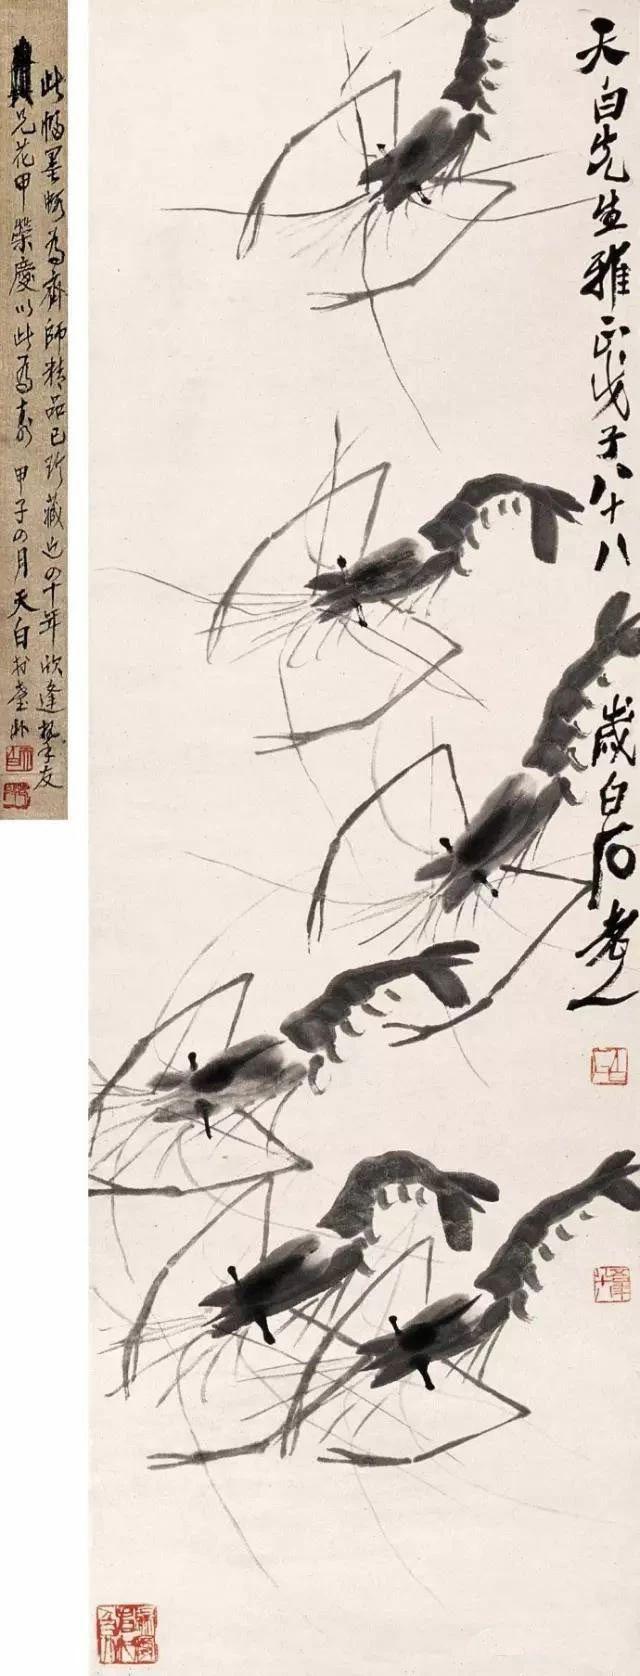 天白先生雅正戊子八十八歲白石老人
此幅墨蝦為齊師精品已珍藏近四十年欣逢摯友
兄花甲榮慶以此為壽 甲子四月天白於臺北